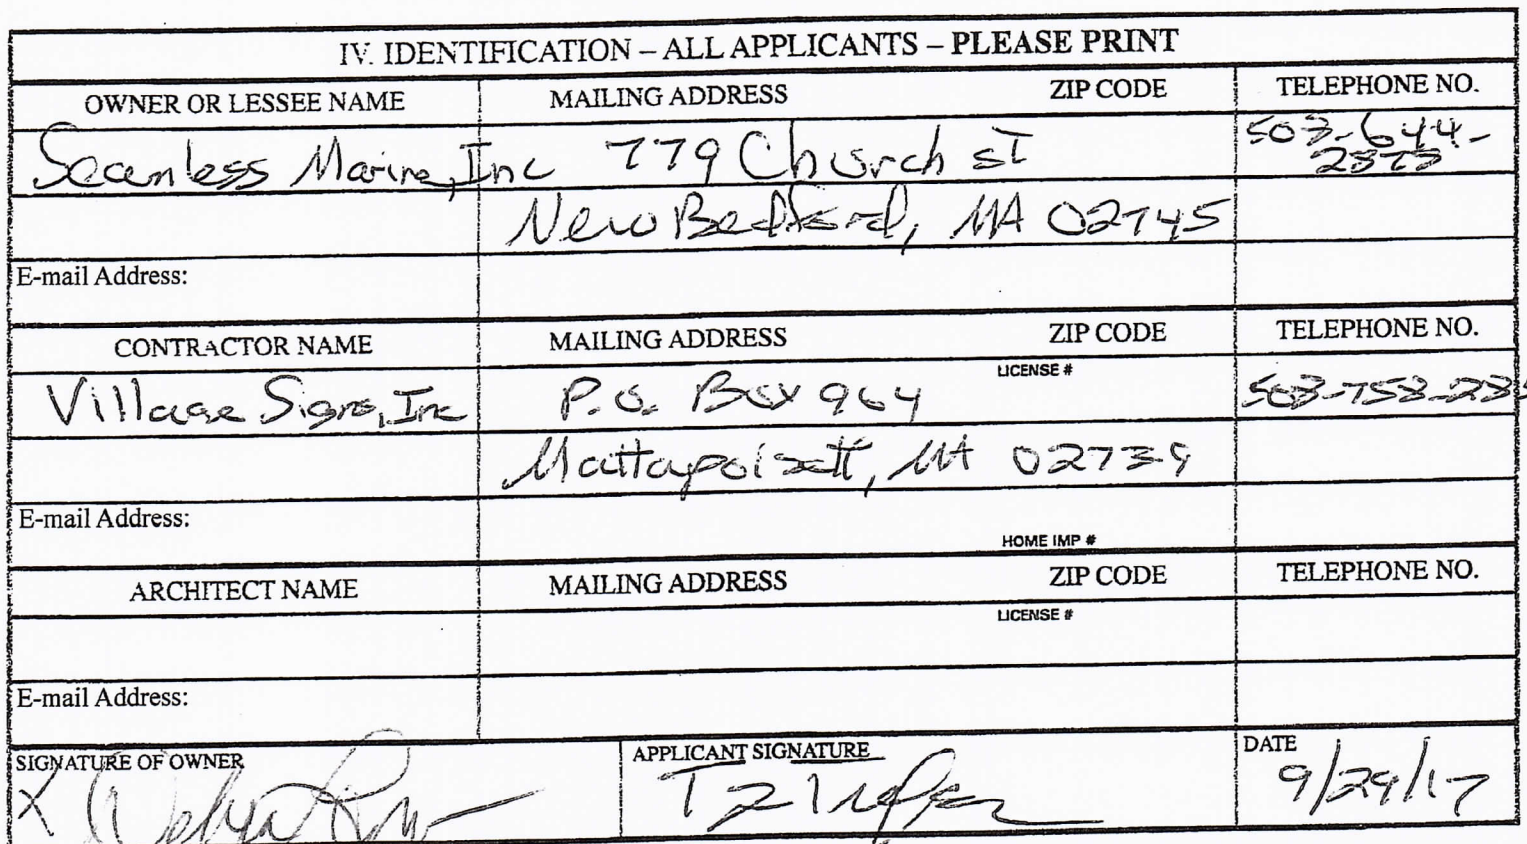 IV. IDENTIFICATION – ALL APPLICANTS – PLEASE PRINT
OWNER OR LESSEE NAME MAILING ADDRESS ZIP CODE TELEPHONE NO.
Seamless Marine, Inc 779 Church ST 508-644-
2878
New Bedford, MA 02745
E-mail Address:
CONTRACTOR NAME MAILING ADDRESS ZIP CODE TELEPHONE NO.
LICENSE #
Village Signs, Inc P.O. Box 964 508-758-285
Mattapoisett, MA 02739
E-mail Address:
HOME IMP #
ARCHITECT NAME MAILING ADDRESS ZIP CODE TELEPHONE NO.
LICENSE #
E-mail Address:
SIGNATURE OF OWNER APPLICANT SIGNATURE DATE
X 9/29/17